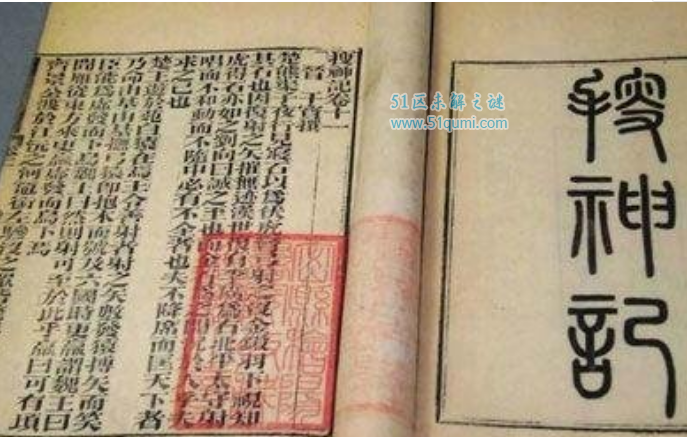 搜神記
搜神記卷十一
晉 干寶撰
楚熊渠子夜行見寢石以為伏虎彎弓射之沒金鎩羽下視知
其石也因復射之矢摧無迹漢世復有李廣為右北平太守射
虎得石亦如之劉向曰誠之至也而金石為之開況於人乎夫
唱而不和動而不隨中必有不全者也夫不降席而匡天下者
求之己也
楚王遊於苑白猿在焉王令善射者射之矢數發猿搏矢而笑
乃命由基由基撫弓猿即抱木而號及六國時更羸謂魏王曰
臣能為虛發而下鳥魏王曰然則射可至於此乎羸曰可有頃
聞雁從東方來更羸虛發而鳥下焉
齊景公渡於江沅之河黿銜左驂沒之
51区未解之谜
www.51qumi.com